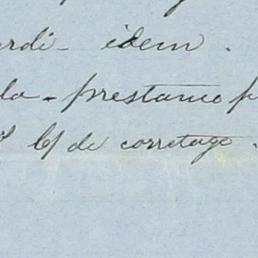 ardi - idem .
la - prestamo p
de corretage .